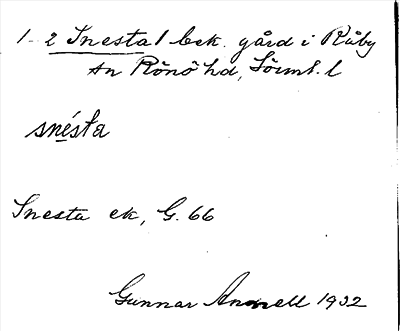 1-2 Snesta 1 bek. gård i Råby
sn Rönö hd, Sörml. l
snésta
Snesta ek, G. 66
Gunnar Annell 1932